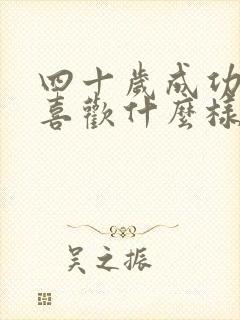 四十歲成功
喜歡什麼樣
吴之振